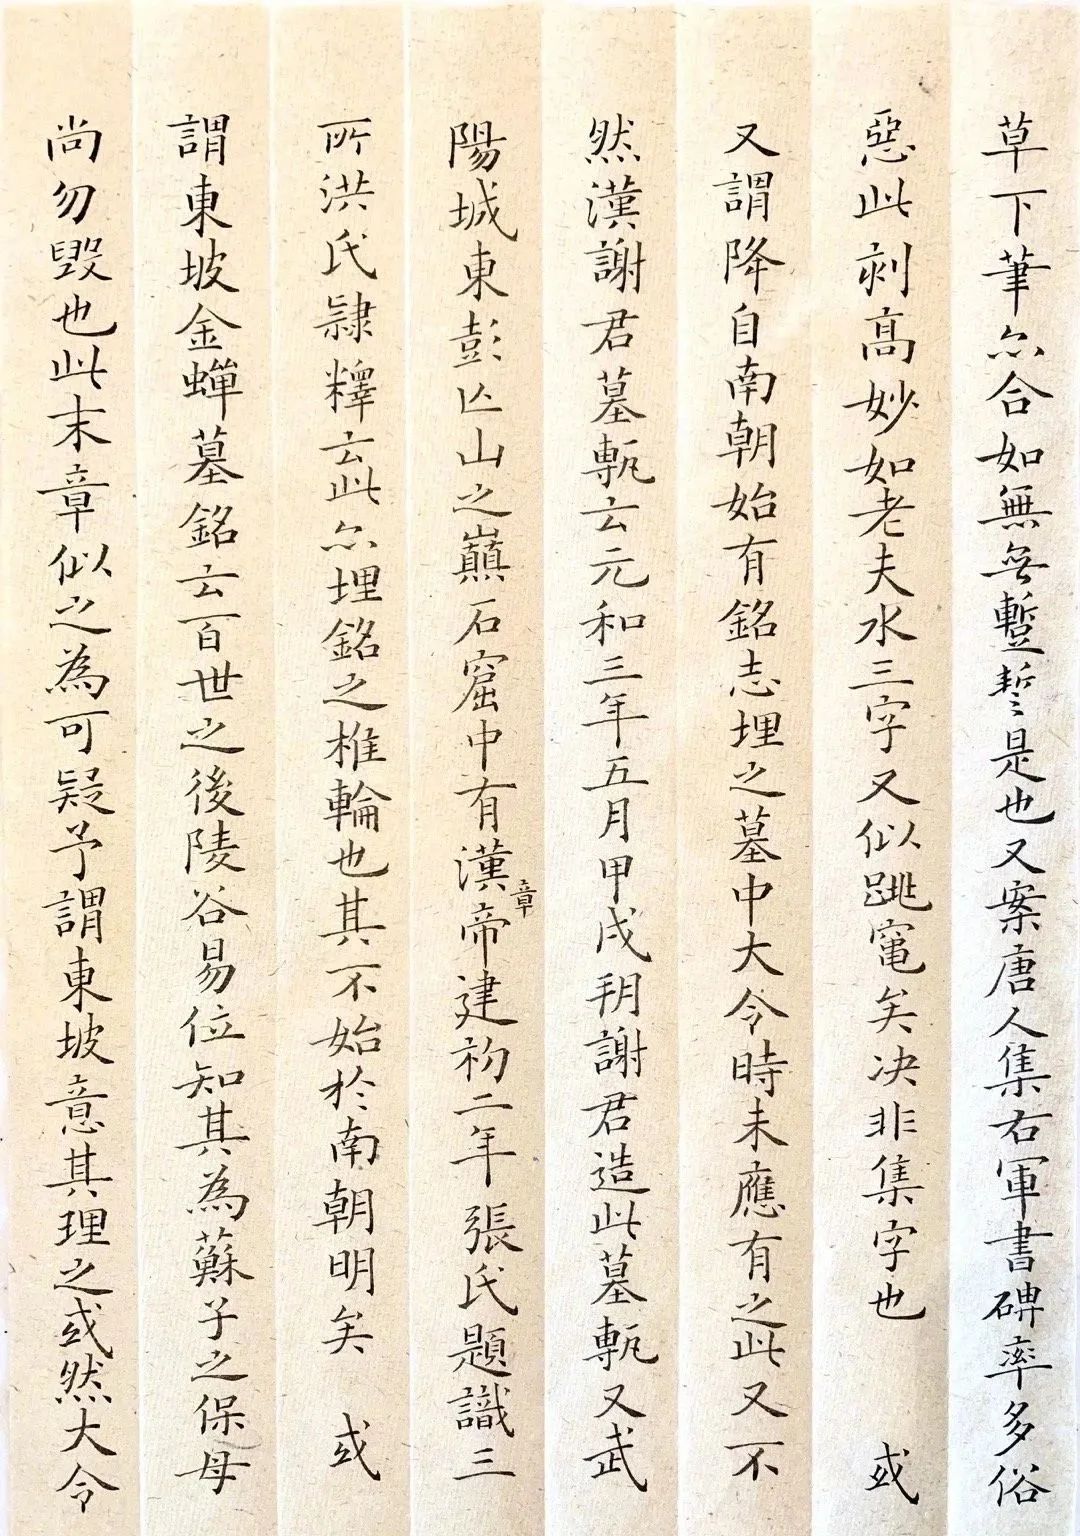 草下筆亦合如無㒫蹔誓是也又案唐人集右軍書碑率多俗
惡此剡高妙如老夫水三字又似跳竄矣决非集字也 或
又謂降自南朝始有銘志埋之墓中大令時未應有之此又不
然漢謝君墓甎云元和三年五月甲戌朔謝君造此墓甎又武
陽城東彭亾山之巔石窟中有漢章帝建初二年張氏題識三
所洪氏隷釋云此亦埋銘之椎輪也其不始於南朝明矣 或
謂東坡金蟬墓銘云百世之後陵谷易位知其為蘇子之保母
尚勿毀也此末章似之為可疑予謂東坡意其理之或然大令